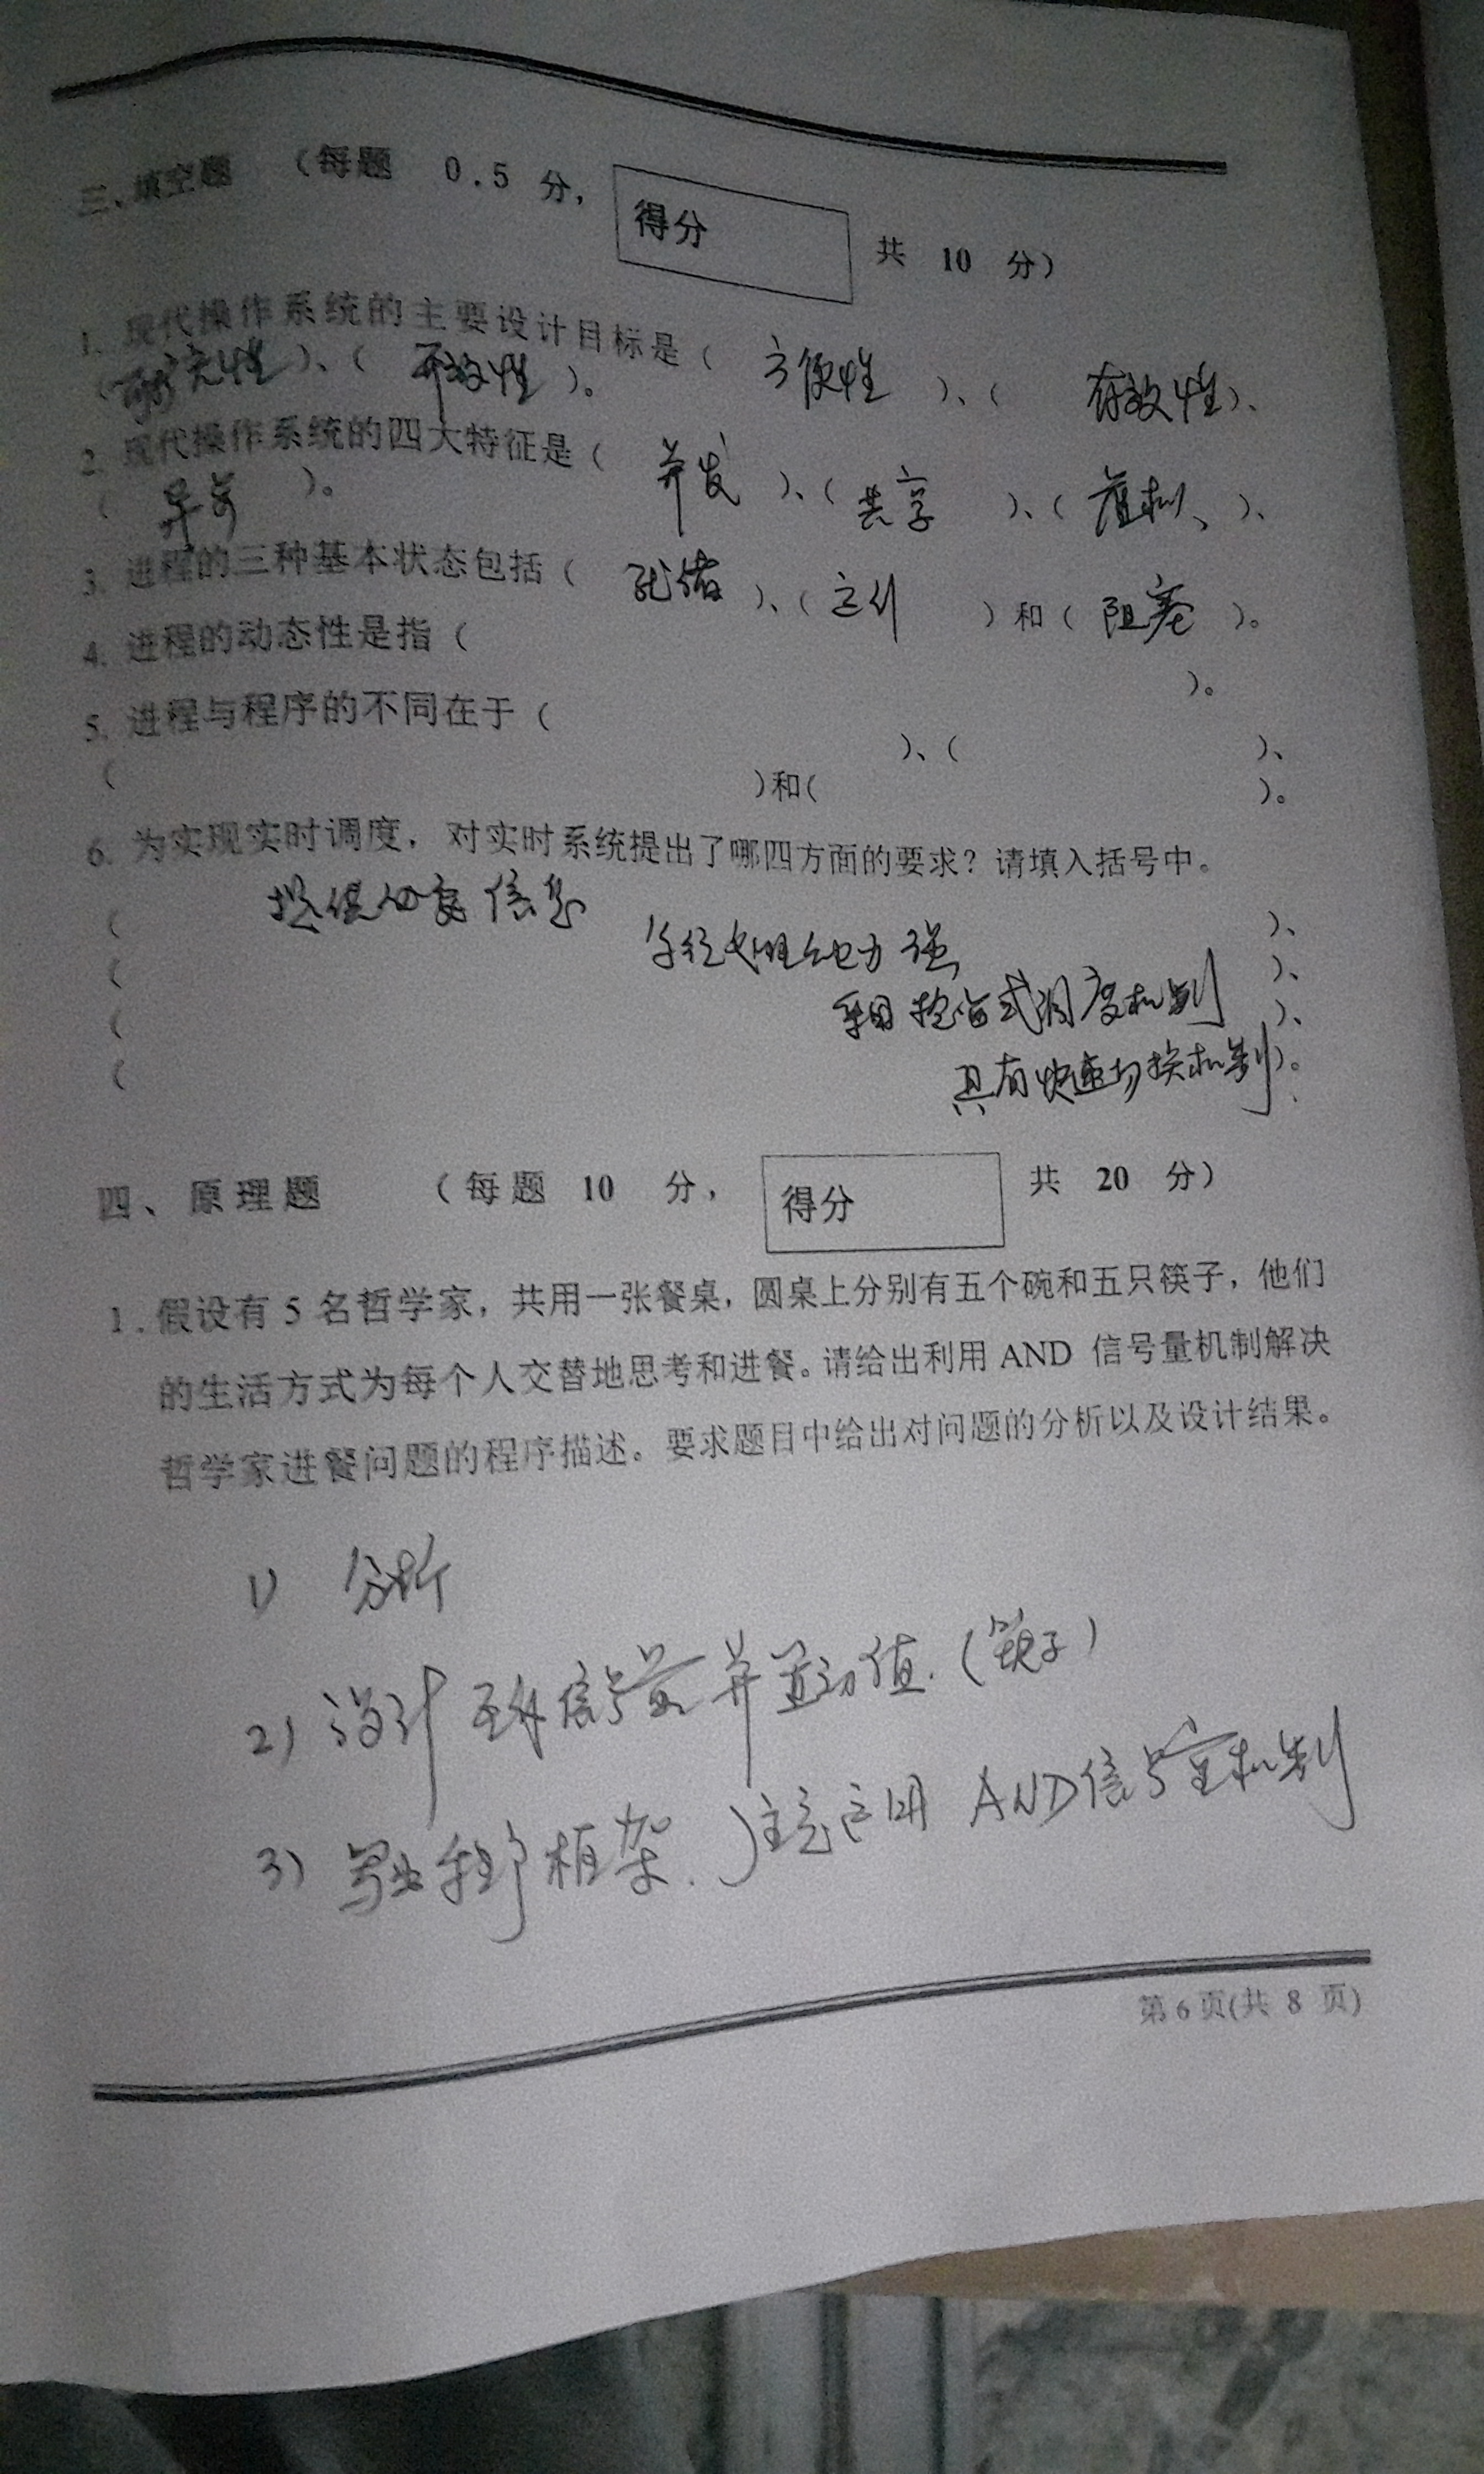 三、填空题 （每题 0.5 分， 得分 共 10 分）
1. 现代操作系统的主要设计目标是（ 方便性 ）、（ 有效性）、
（可扩充性）、（ 开放性 ）。
2. 现代操作系统的四大特征是（ 并发 ）、（共享 ）、（虚拟、）、
（ 异步 ）。
3. 进程的三种基本状态包括（ 就绪 ）、（运行 ）和（ 阻塞 ）。
4. 进程的动态性是指（ ）。
5. 进程与程序的不同在于（ ）、（ ）、
（ ）和（ ）。
6. 为实现实时调度，对实时系统提出了哪四方面的要求？请填入括号中。
（ 提供必要信息 ）、
（ 系统处理能力强 ）、
（ 采用抢占式调度机制 ）、
（ 具有快速切换机制）。
四、原理题 （每题 10 分， 得分 共 20 分）
1. 假设有 5 名哲学家，共用一张餐桌，圆桌上分别有五个碗和五只筷子，他们
的生活方式为每个人交替地思考和进餐。请给出利用 AND 信号量机制解决
哲学家进餐问题的程序描述。要求题目中给出对问题的分析以及设计结果。
1) 分析
2) 设计 信号量 并置初值.（筷子）
3) 写出程序框架. 注意应用 AND信号量机制
第 6 页(共 8 页)